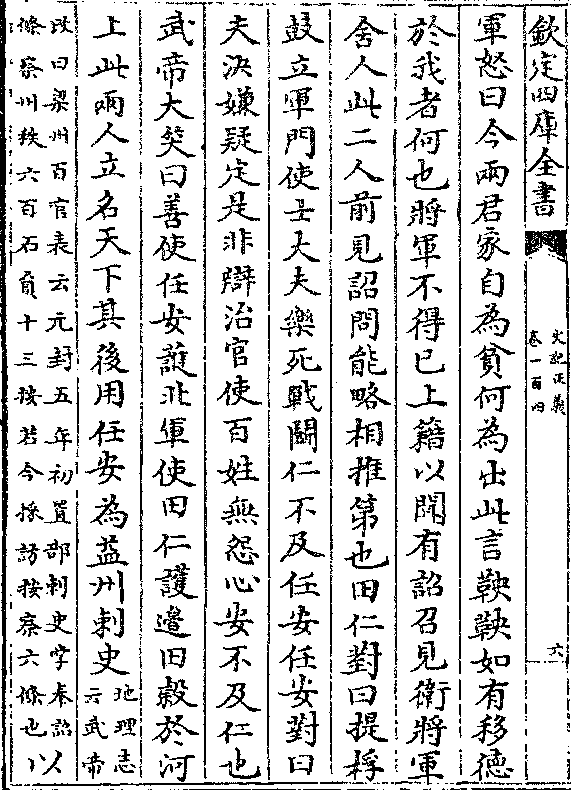 欽定四庫全書
史記正義
卷一百四
六
軍怒曰今兩君家自為貧何為出此言鞅鞅如有移德
於我者何也將軍不得已上籍以聞有詔召見衛將軍
舍人此二人前見詔問能略相推第也田仁對曰提桴
鼓立軍門使士大夫樂死戰鬬仁不及任安任安對曰
夫決嫌疑定是非辯治官使百姓無怨心安不及仁也
武帝大笑曰善使任安護北軍使田仁護邊田穀於河
上此兩人立名天下其後用任安為益州刺史
地理志
云武帝
改曰梁州百官表云元封五年初置部刺史掌奉詔
條察州秩六百石員十三按若今採訪按察六條也以